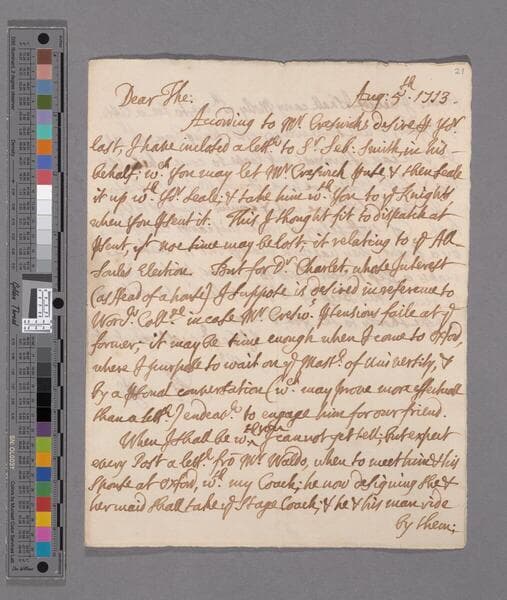 21
Dear The:
Aug: 5th. 1713.
According to Mr. Creswicks desire in Yor
last, I have inclosed a lettr to Sr. Seb. Smith, in his
behalf, wch You may let Mr Creswick see & then seale
it up wth Yor Seale; & take him wth You to ye Knights
when You psent it. This I thought fit to dispatch at
psent, yt noe time may be lost, it relating to ye All
Soules Election. But for Dr. Charlet, whose Interest
(as Head of a house) I suppose is desired in reference to
Coll in case Mr Cresw: ptensions faile at ye
former; it may be time enough when I come to Oxford,
where I purpose to wait on ye Mastr of University, &
by a psonal conversation (wch may prove more effectuall
than a lettr) endeavr to engage him for our friend.
When I shall be wth You I cannot yet tell; but expect
every Post a lettr frō Mr Waldo, when to meet him & his
Spouse at Oxford, wth my Coach; he now designing she &
her maid shall take ye Stage Coach, & he & his man ride
by them;